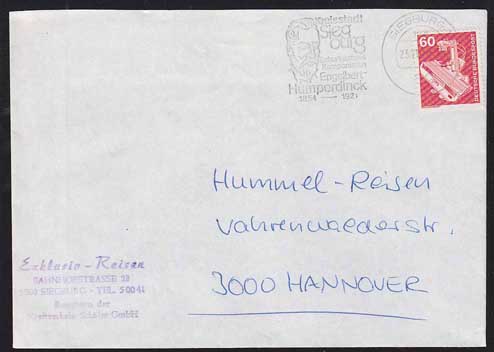 Kreisstadt
Sieg
burg
Geburtsstadt d.
Komponisten
Engelbert
Humperdinck
1854 — 1921
SIEGBURG
60
DEUTSCHE BUNDESPOST
Hummel-Reisen
Vahrenwalderstr.
3000 HANNOVER
Exklusiv-Reisen
BAHNHOFSTRASSE 22
5200 SIEGBURG - TEL. 50041
der
GmbH